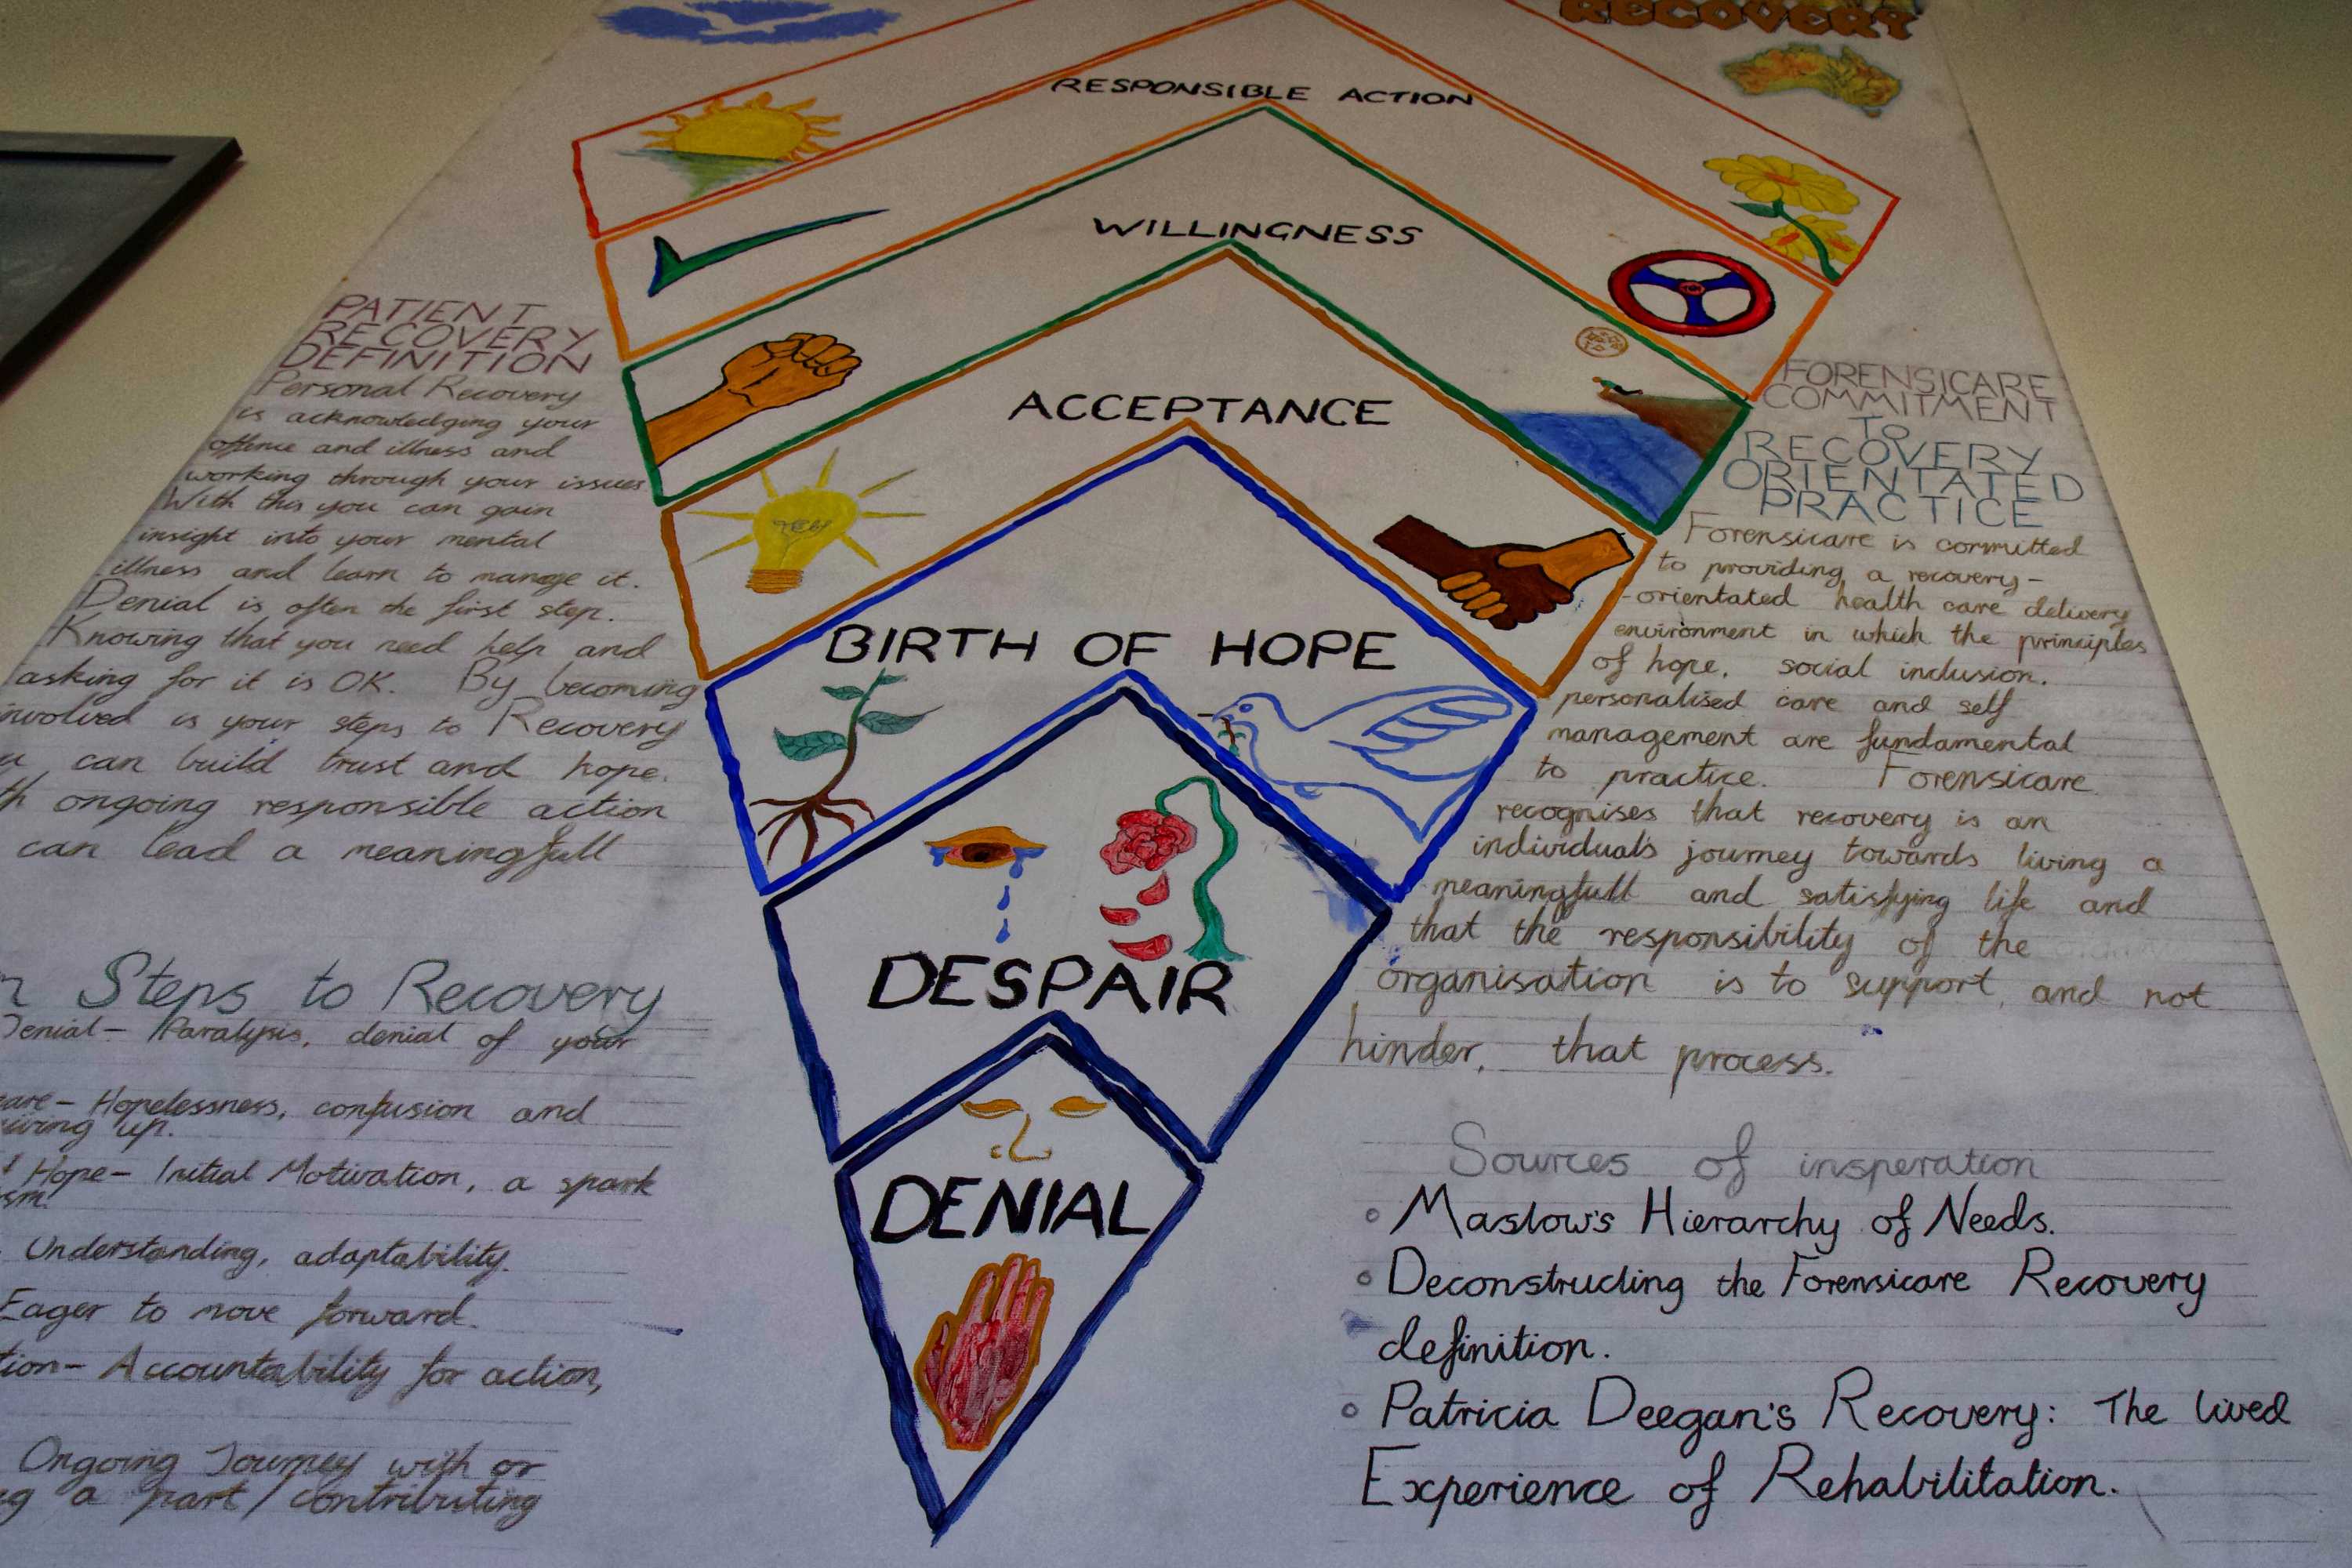 RECOVERY
RESPONSIBLE ACTION
WILLINGNESS
ACCEPTANCE
BIRTH OF HOPE
DESPAIR
DENIAL
PATIENT
RECOVERY
DEFINITION
Personal Recovery
is acknowledging your
offence and illness and
working through your issues.
With this you can gain
insight into your mental
illness and learn to manage it.
Denial is often the first step.
Knowing that you need help and
asking for it is OK. By becoming
involved is your steps to Recovery
can build trust and hope.
ongoing responsible action
can lead a meaningfull
Steps to Recovery
Denial - Paralysis, denial of your
Hopelessness, confusion and
up.
Hope - Initial Motivation, a spark
Understanding, adaptability.
Eager to move forward.
Accountability for action,
Ongoing Journey with or
a part / contributing
FORENSICARE
COMMITMENT
TO
RECOVERY
ORIENTATED
PRACTICE
Forensicare is committed
to providing a recovery-
-orientated health care delivery
environment in which the principles
of hope, social inclusion,
personalised care and self
management are fundamental
to practice. Forensicare
recognises that recovery is an
individuals journey towards living a
meaningfull and satisfying life and
that the responsibility of the
organisation is to support, and not
hinder, that process.
Sources of insperation
Maslow's Hierarchy of Needs.
Deconstructing the Forensicare Recovery
definition.
Patricia Deegan's Recovery: The lived
Experience of Rehabilitation.